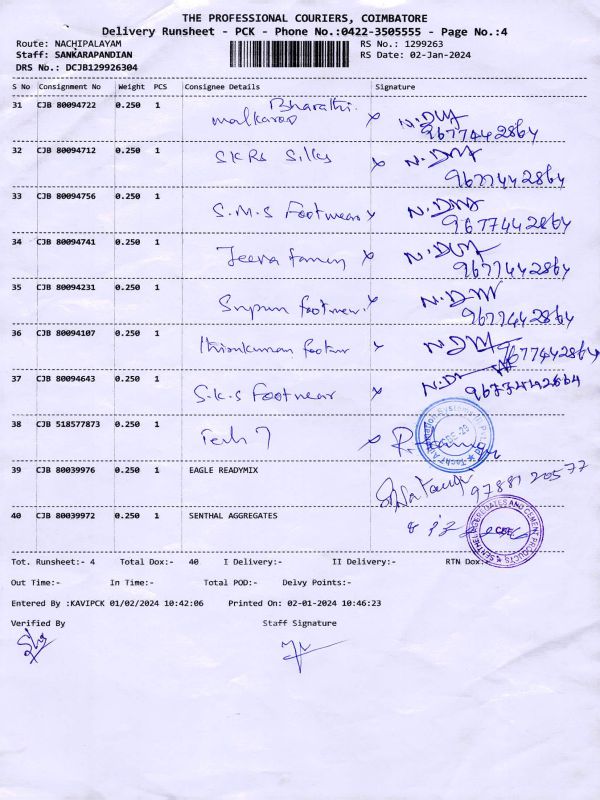 THE PROFESSIONAL COURIERS, COIMBATORE
Delivery Runsheet - PCK - Phone No.:0422-3505555 - Page No.:4
Route: NACHIPALAYAM RS No.: 1299263
Staff: SANKARAPANDIAN RS Date: 02-Jan-2024
DRS No.: DCJB129926304
S No Consignment No Weight PCS Consignee Details Signature
31 CJB 80094722 0.250 1 Bharathi
9677442864
32 CJB 80094712 0.250 1 SKRS Silks x
9677442864
33 CJB 80094756 0.250 1
S.M.S Footwear x 9677442864
34 CJB 80094741 0.250 1
Jeeva x 9677442864
35 CJB 80094231 0.250 1
9677442864
36 CJB 80094107 0.250 1
9677442864
37 CJB 80094643 0.250 1
S.K.S Footwear x 9677442864
38 CJB 518577873 0.250 1
Tech 7 x
39 CJB 80039976 0.250 1 EAGLE READYMIX
9788120577
40 CJB 80039972 0.250 1 SENTHAL AGGREGATES
CBE
Tot. Runsheet:- 4 Total Dox:- 40 I Delivery:- II Delivery:- RTN Dox:-
Out Time:- In Time:- Total POD:- Delvy Points:-
Entered By :KAVIPCK 01/02/2024 10:42:06 Printed On: 02-01-2024 10:46:23
Verified By Staff Signature